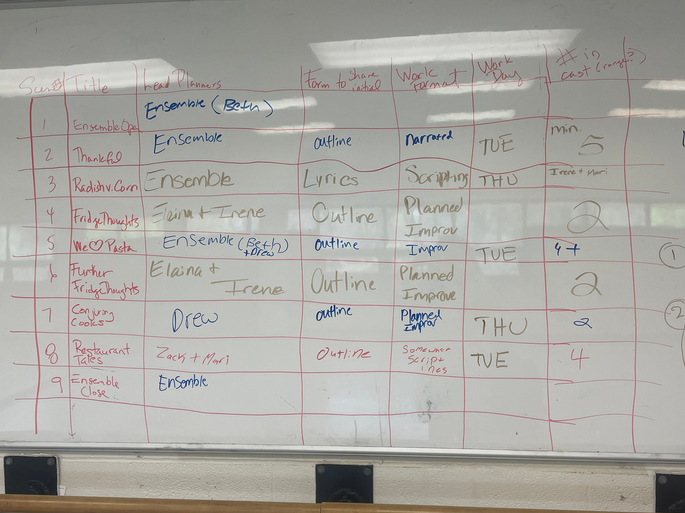 Title Lead Planners Form to Share initial Work Format Work Day # in cast (range?)
1 Ensemble Open Ensemble (Beth)
2 Thankful Ensemble outline Narrated TUE min. 5
3 Radish v. Corn Ensemble Lyrics Scripting THU Irene + Mari
4 Fridge Thoughts Elaina + Irene Outline Planned Improv 2
5 We ♡ Pasta Ensemble (Beth + Drew) outline Improv TUE 4+ 1
6 Further Fridge Thoughts Elaina + Irene Outline Planned Improve 2
7 Conjuring Cooks Drew outline Planned Improv THU 2 2
8 Restaurant Tales Zack + Mari Outline Somewhat Script lines TUE 4
9 Ensemble Close Ensemble